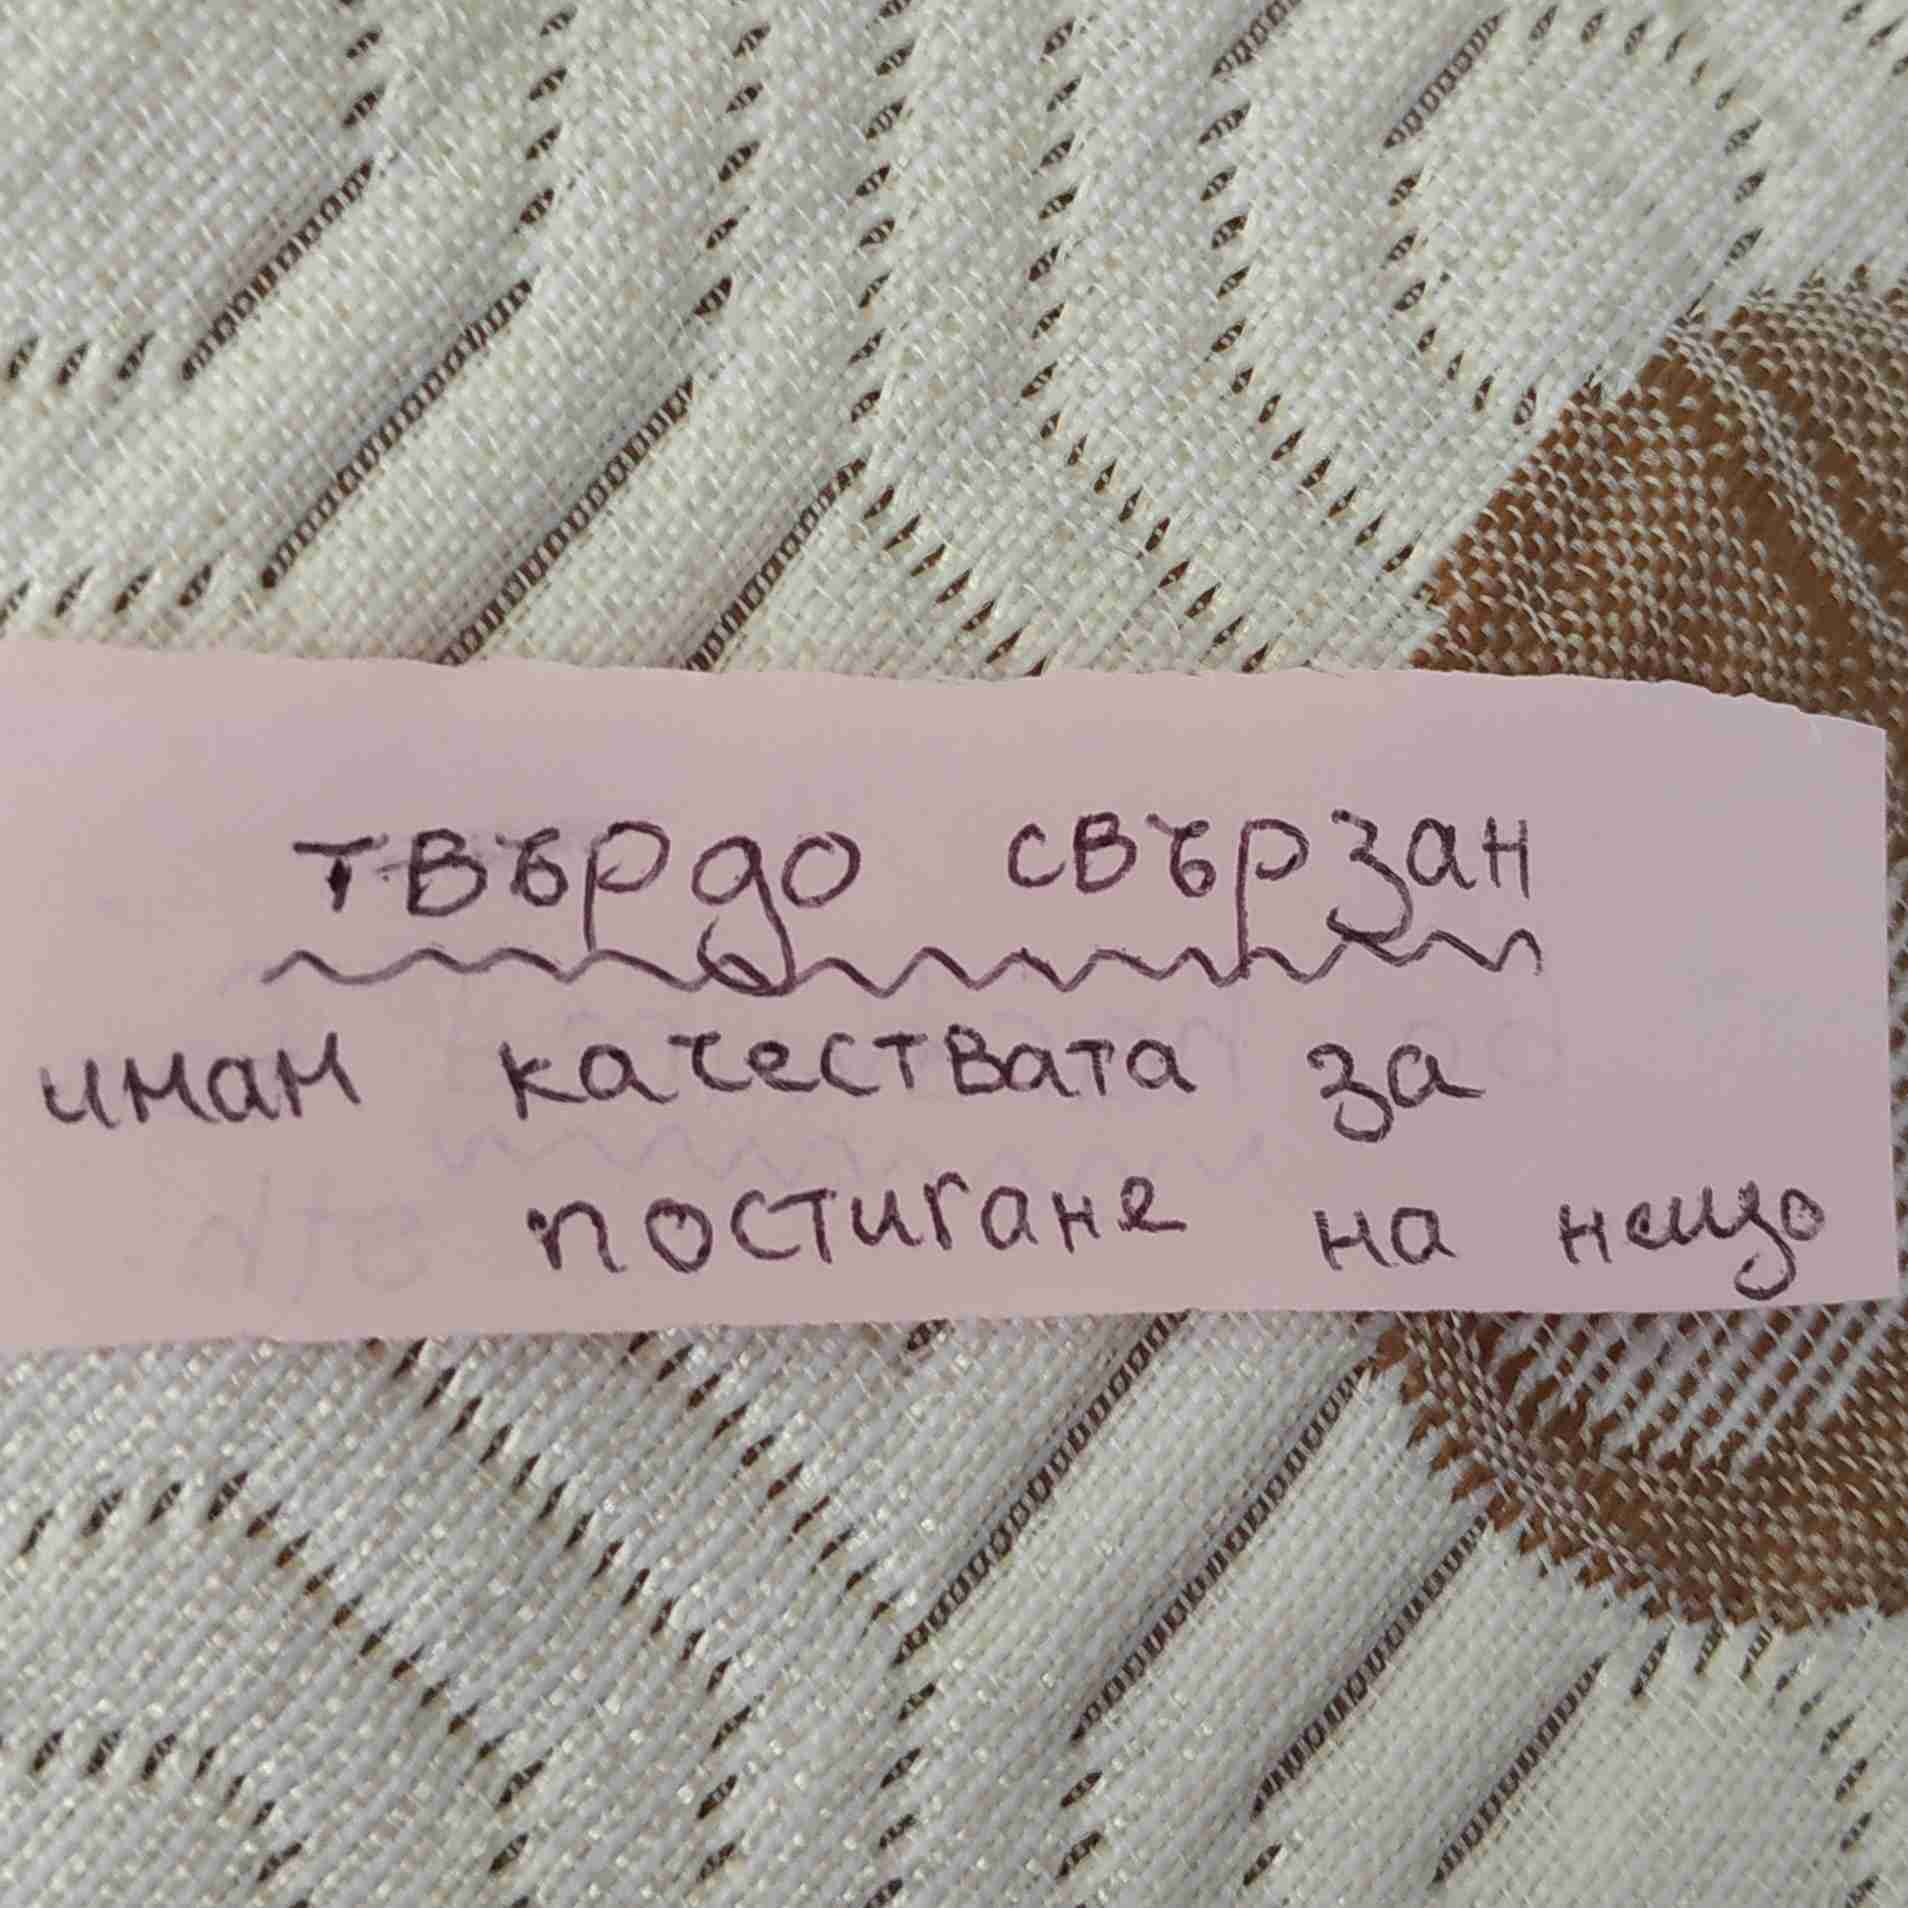 твърдо свързан
имам качествата за
постигане на нещо